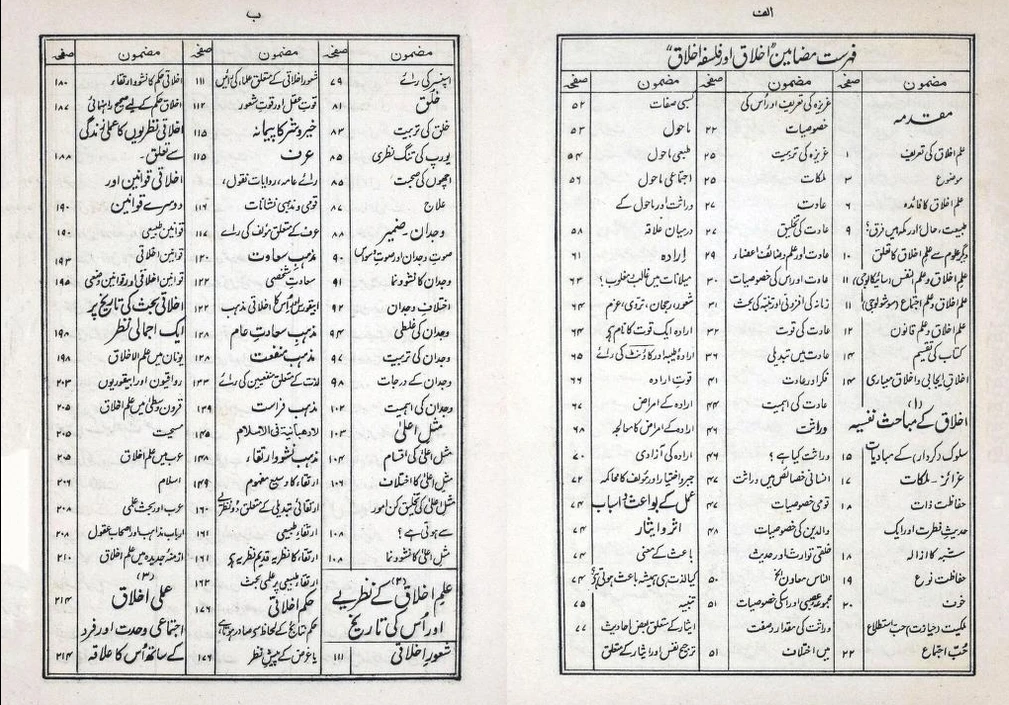 الف
فہرست مضامین "اخلاق اور فلسفہ اخلاق"
مضمون صفحہ
مقدمہ
علم اخلاق کی تعریف ۱
موضوع ۳
علم اخلاق کا فائدہ ۶
طبیعت، حال اور ملکہ میں فرق؟ ۹
دیگر علوم سے علم اخلاق کا تعلق ۱۰
علم اخلاق و علم النفس (سائیکالوجی) ۱۱
علم اخلاق و علم اجتماع (سوشیولوجی) ۱۱
علم اخلاق و علم قانون ۱۲
کتاب کی تقسیم ۱۴
اخلاق ایجابی و اخلاق معیاری ۱۴
(۱)
اخلاق کے مباحث نفسیہ
سلوک (کردار) کے مبادیات ۱۵
غرائز - ملکات ۱۷
حفاظت ذات ۱۸
حدیث فطرت اور ایک
شبہ کا ازالہ ۱۸
حفاظت نوع ۱۹
خوف ۲۰
ملکیت (حیازت) حب استطلاع
حُبّ اجتماع ۲۲
مضمون صفحہ
غریزہ کی تعریف اور اُس کی
خصوصیات ۲۲
غریزہ کی تربیت ۲۵
ملکات ۲۵
عادت ۲۷
عادت کی تخلیق ۲۷
عادت اور علم وظائف اعضاء ۲۹
عادت اور اس کی خصوصیات ۳۰
زمانہ کی افزونی اور تنبہ کی بحث ۳۱
عادت کی قوت ۳۲
عادت میں تبدیلی ۳۶
فکر اور عادت ۴۱
عادت کی اہمیت ۴۴
وراثت ۴۶
وراثت کیا ہے؟ ۴۶
انسانی خصائص میں وراثت ۴۷
قومی خصوصیات ۴۷
والدین کی خصوصیات ۴۸
خلقی توارث اور حدیث
الناس معادن الخ ۵۰
مجموعہ عصبی اور اسکی خصوصیات ۵۱
وراثت کی مقدار و صفت
میں اختلاف ۵۱
مضمون صفحہ
کسبی صفات ۵۲
ماحول ۵۳
طبعی ماحول ۵۴
اجتماعی ماحول ۵۶
وراثت اور ماحول کے
درمیان علاقہ ۵۸
ارادہ ۶۱
میلانات میں غالب مغلوب؟ ۶۳
شعور، رجحان، تروی، عزم ۶۴
ارادہ ایک قوت کا نام ہے ۶۴
ارادۂ طیبہ اور کانٹ کی رائے ۶۵
قوتِ ارادہ ۶۶
ارادہ کے امراض ۶۷
ارادہ کے امراض کا معالجہ ۶۸
ارادہ کی آزادی ۷۰
جبر و اختیار اور مؤلف کا محاکمہ ۷۲
عمل کے بواعث و اسباب ۷۴
اثرہ و ایثار ۷۴
باعث کے معنی ۷۴
کیا لذت ہی ہمیشہ باعث ہوتی ہے؟ ۷۴
تنبیہ ۷۵
ایثار کے متعلق بعض احادیث ۷۷
ترجیح نفس اور ایثار کے متعلق
ب
مضمون صفحہ
اسپنسر کی رائے ۷۹
خُلق ۸۱
خلق کی تربیت ۸۳
یورپ کی تنگ نظری ۸۵
اچھوں کی صحبت ۸۵
علاج ۸۷
وجدان - ضمیر ۸۸
صوتِ وجدان اور صوتِ موسیٰ ۹۰
وجدان کا نشوونما ۹۱
اختلافِ وجدان ۹۲
وجدان کی غلطی ۹۴
وجدان کی تربیت ۹۷
وجدان کے درجات ۹۸
وجدان کی اہمیت ۱۰۲
مثلِ اعلیٰ ۱۰۳
مثل اعلیٰ کی اقسام ۱۰۴
مثل اعلیٰ کا اختلاف ۱۰۶
مثل اعلیٰ کی تخلیق کن امور
سے ہوتی ہے؟ ۱۰۸
مثل اعلیٰ کا نشوونما ۱۰۸
(۲)
علم اخلاق کے نظریے
اور اُس کی تاریخ
شعورِ اخلاقی ۱۱۱
مضمون صفحہ
شعور اخلاقی کے متعلق علماء کی رائیں ۱۱۱
قوتِ عقل اور قوتِ شعور ۱۱۲
خیر و شر کا پیمانہ ۱۱۵
عرف ۱۱۵
رائے عامہ، روایات نقول،
قومی و مذہبی نشانات ۱۱۶
عرف کے متعلق مؤلف کی رائے ۱۱۷
مذہب سعادت ۱۲۰
سعادتِ شخصی ۱۲۲
ابیقورس اور اُس کا اخلاقی مذہب ۱۲۲
مذہب سعادتِ عام ۱۲۸
مذہب منفعت ۱۲۸
لذت کے متعلق متنفعین کی رائے ۱۳۳
مذہب فراست ۱۳۹
لا رھبانیۃ فی الاسلام ۱۴۵
مذہب نشو و ارتقاء ۱۴۸
ارتقاء کا وسیع مفہوم ۱۴۹
ارتقائی تبدیلی کے متعلق دو نظریے ۱۶۰
ارتقاءِ طبیعی ۱۶۱
ارتقاء کا نظریہ قدیم نظریہ ہے ۱۶۱
ارتقاء طبیعی پر علمی بحث ۱۶۲
حکم اخلاقی ۱۷۶
حکم نتائج کے لحاظ سے صادر ہوتا ہے
یا غرض کے پیش نظر ۱۷۶
مضمون صفحہ
اخلاقی حکم کا نشو و ارتقاء ۱۸۰
اخلاقی حکم کے لیے صحیح راہنمائی ۱۸۷
اخلاقی نظریوں کا عملی زندگی
سے تعلق۔ ۱۸۸
اخلاقی قوانین اور
دوسرے قوانین ۱۹۰
قوانین طبیعی ۱۹۰
قوانین اخلاقی ۱۹۳
قوانین اخلاقی اور قوانین وضعی ۱۹۵
اخلاقی بحث کی تاریخ پر
ایک اجمالی نظر ۱۹۸
یونان میں علم الاخلاق ۱۹۸
رواقیون اور ابیقوریوں ۲۰۳
قرون وسطیٰ میں علم اخلاق ۲۰۵
مسیحیت ۲۰۵
عرب میں علم اخلاق ۲۰۵
اسلام ۲۰۶
عرب اور بحث علمی ۲۰۸
ارباب مذاہب اور اصحاب عقول ۲۰۸
ازمنۂ جدیدہ میں علم اخلاق ۲۱۰
(۳)
عملی اخلاق ۲۱۴
اجتماعی وحدت اور فرد
کے ساتھ اُس کا علاقہ ۲۱۴